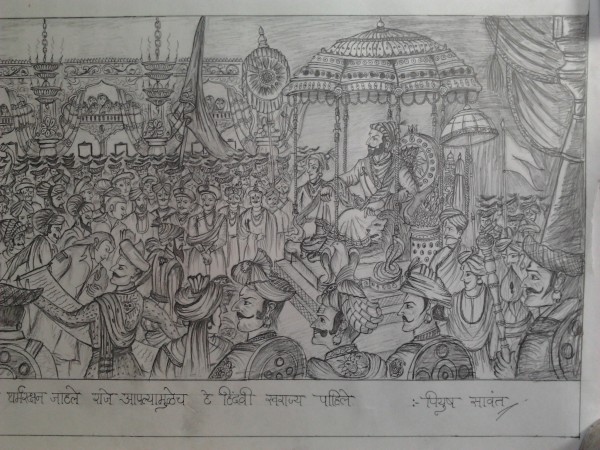 धर्मरक्षन जाहले राजे आपल्यामुळेच हे हिंदवी स्वराज्य पाहिले :- पियुष सावंत